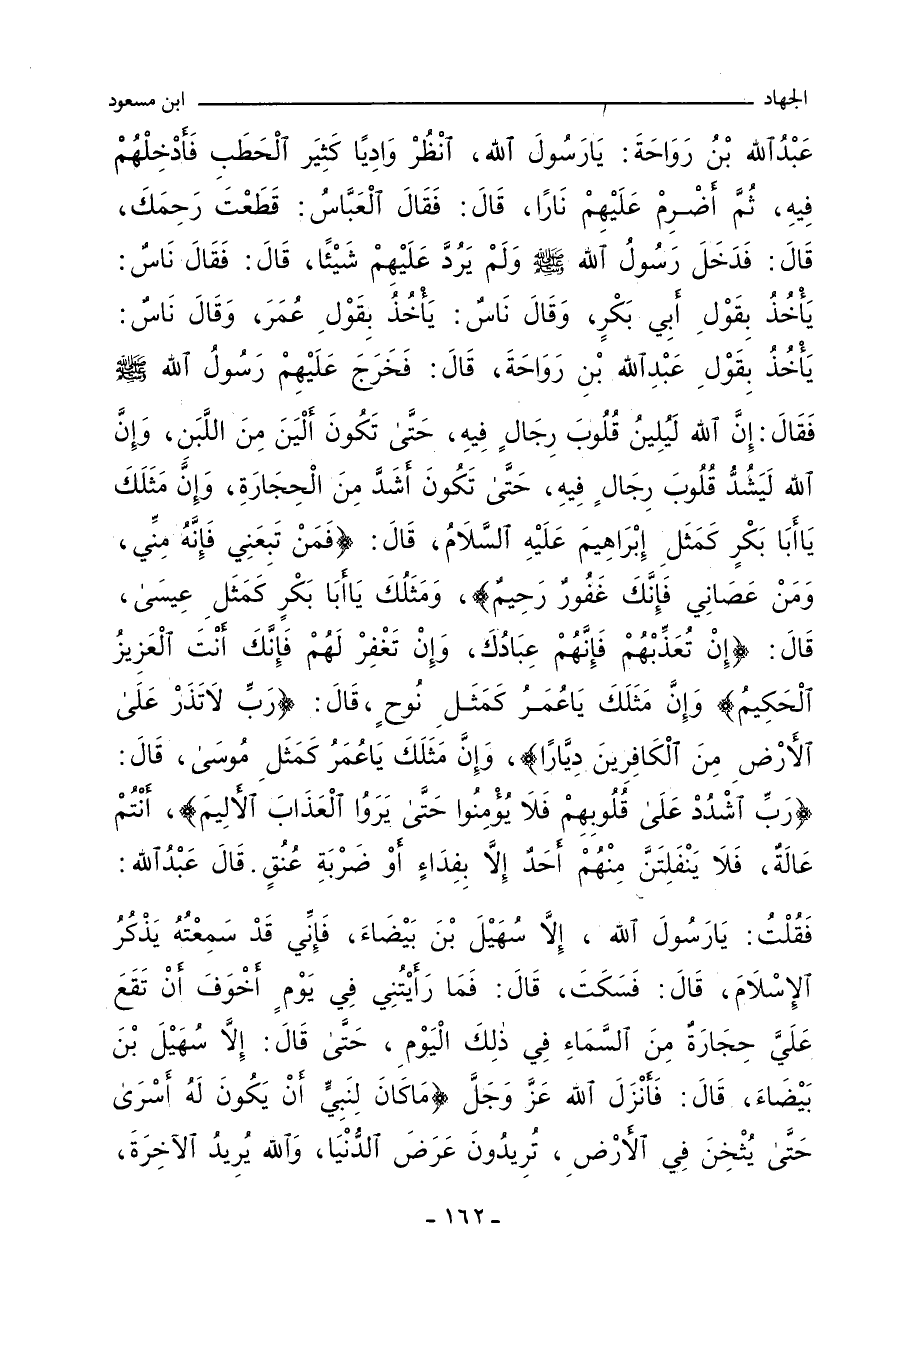 الجهاد ــــــــــــــــــــ ابن مسعود
عَبْدُٱللهِ بْنُ رَوَاحَةَ: يَارَسُولَ ٱللهِ، ٱنْظُرْ وَادِيًا كَثِيرَ ٱلْحَطَبِ فَأَدْخِلْهُمْ
فِيهِ، ثُمَّ أَضْرِمْ عَلَيْهِمْ نَارًا، قَالَ: فَقَالَ ٱلْعَبَّاسُ: قَطَعْتَ رَحِمَكَ،
قَالَ: فَدَخَلَ رَسُولُ ٱللهِ ﷺ وَلَمْ يَرُدَّ عَلَيْهِمْ شَيْئًا، قَالَ: فَقَالَ نَاسٌ:
يَأْخُذُ بِقَوْلِ أَبِي بَكْرٍ، وَقَالَ نَاسٌ: يَأْخُذُ بِقَوْلِ عُمَرَ، وَقَالَ نَاسٌ:
يَأْخُذُ بِقَوْلِ عَبْدِٱللهِ بْنِ رَوَاحَةَ، قَالَ: فَخَرَجَ عَلَيْهِمْ رَسُولُ ٱللهِ ﷺ
فَقَالَ: إِنَّ ٱللهَ لَيُلِينُ قُلُوبَ رِجَالٍ فِيهِ، حَتَّىٰ تَكُونَ أَلْيَنَ مِنَ اللَّبَنِ، وَإِنَّ
ٱللهَ لَيَشُدُّ قُلُوبَ رِجَالٍ فِيهِ، حَتَّىٰ تَكُونَ أَشَدَّ مِنَ الْحِجَارَةِ، وَإِنَّ مَثَلَكَ
يَاأَبَا بَكْرٍ كَمَثَلِ إِبْرَاهِيمَ عَلَيْهِ ٱلسَّلَامُ، قَالَ: ﴿فَمَنْ تَبِعَنِي فَإِنَّهُ مِنِّي،
وَمَنْ عَصَانِي فَإِنَّكَ غَفُورٌ رَحِيمٌ﴾، وَمَثَلُكَ يَاأَبَا بَكْرٍ كَمَثَلِ عِيسَىٰ،
قَالَ: ﴿إِنْ تُعَذِّبْهُمْ فَإِنَّهُمْ عِبَادُكَ، وَإِنْ تَغْفِرْ لَهُمْ فَإِنَّكَ أَنْتَ ٱلْعَزِيزُ
ٱلْحَكِيمُ﴾ وَإِنَّ مَثَلَكَ يَاعُمَرُ كَمَثَلِ نُوحٍ، قَالَ: ﴿رَبِّ لَاتَذَرْ عَلَىٰ
ٱلْأَرْضِ مِنَ ٱلْكَافِرِينَ دِيَّارًا﴾، وَإِنَّ مَثَلَكَ يَاعُمَرُ كَمَثَلِ مُوسَىٰ، قَالَ:
﴿رَبِّ ٱشْدُدْ عَلَىٰ قُلُوبِهِمْ فَلَا يُؤْمِنُوا حَتَّىٰ يَرَوُا ٱلْعَذَابَ ٱلْأَلِيمَ﴾، أَنْتُمْ
عَالَةٌ، فَلَا يَنْفَلِتَنَّ مِنْهُمْ أَحَدٌ إِلَّا بِفِدَاءٍ أَوْ ضَرْبَةِ عُنُقٍ. قَالَ عَبْدُٱللهِ:
فَقُلْتُ: يَارَسُولَ ٱللهِ ، إِلَّا سُهَيْلَ بْنَ بَيْضَاءَ، فَإِنِّي قَدْ سَمِعْتُهُ يَذْكُرُ
ٱلْإِسْلَامَ، قَالَ: فَسَكَتَ، قَالَ: فَمَا رَأَيْتُنِي فِي يَوْمٍ أَخْوَفَ أَنْ تَقَعَ
عَلَيَّ حِجَارَةٌ مِنَ ٱلسَّمَاءِ فِي ذٰلِكَ الْيَوْمِ ، حَتَّىٰ قَالَ: إِلَّا سُهَيْلَ بْنَ
بَيْضَاءَ، قَالَ: فَأَنْزَلَ ٱللهُ عَزَّ وَجَلَّ ﴿مَاكَانَ لِنَبِيٍّ أَنْ يَكُونَ لَهُ أَسْرَىٰ
حَتَّىٰ يُثْخِنَ فِي ٱلْأَرْضِ ، تُرِيدُونَ عَرَضَ ٱلدُّنْيَا، وَٱللهُ يُرِيدُ ٱلْآخِرَةَ،
- ١٦٢ -